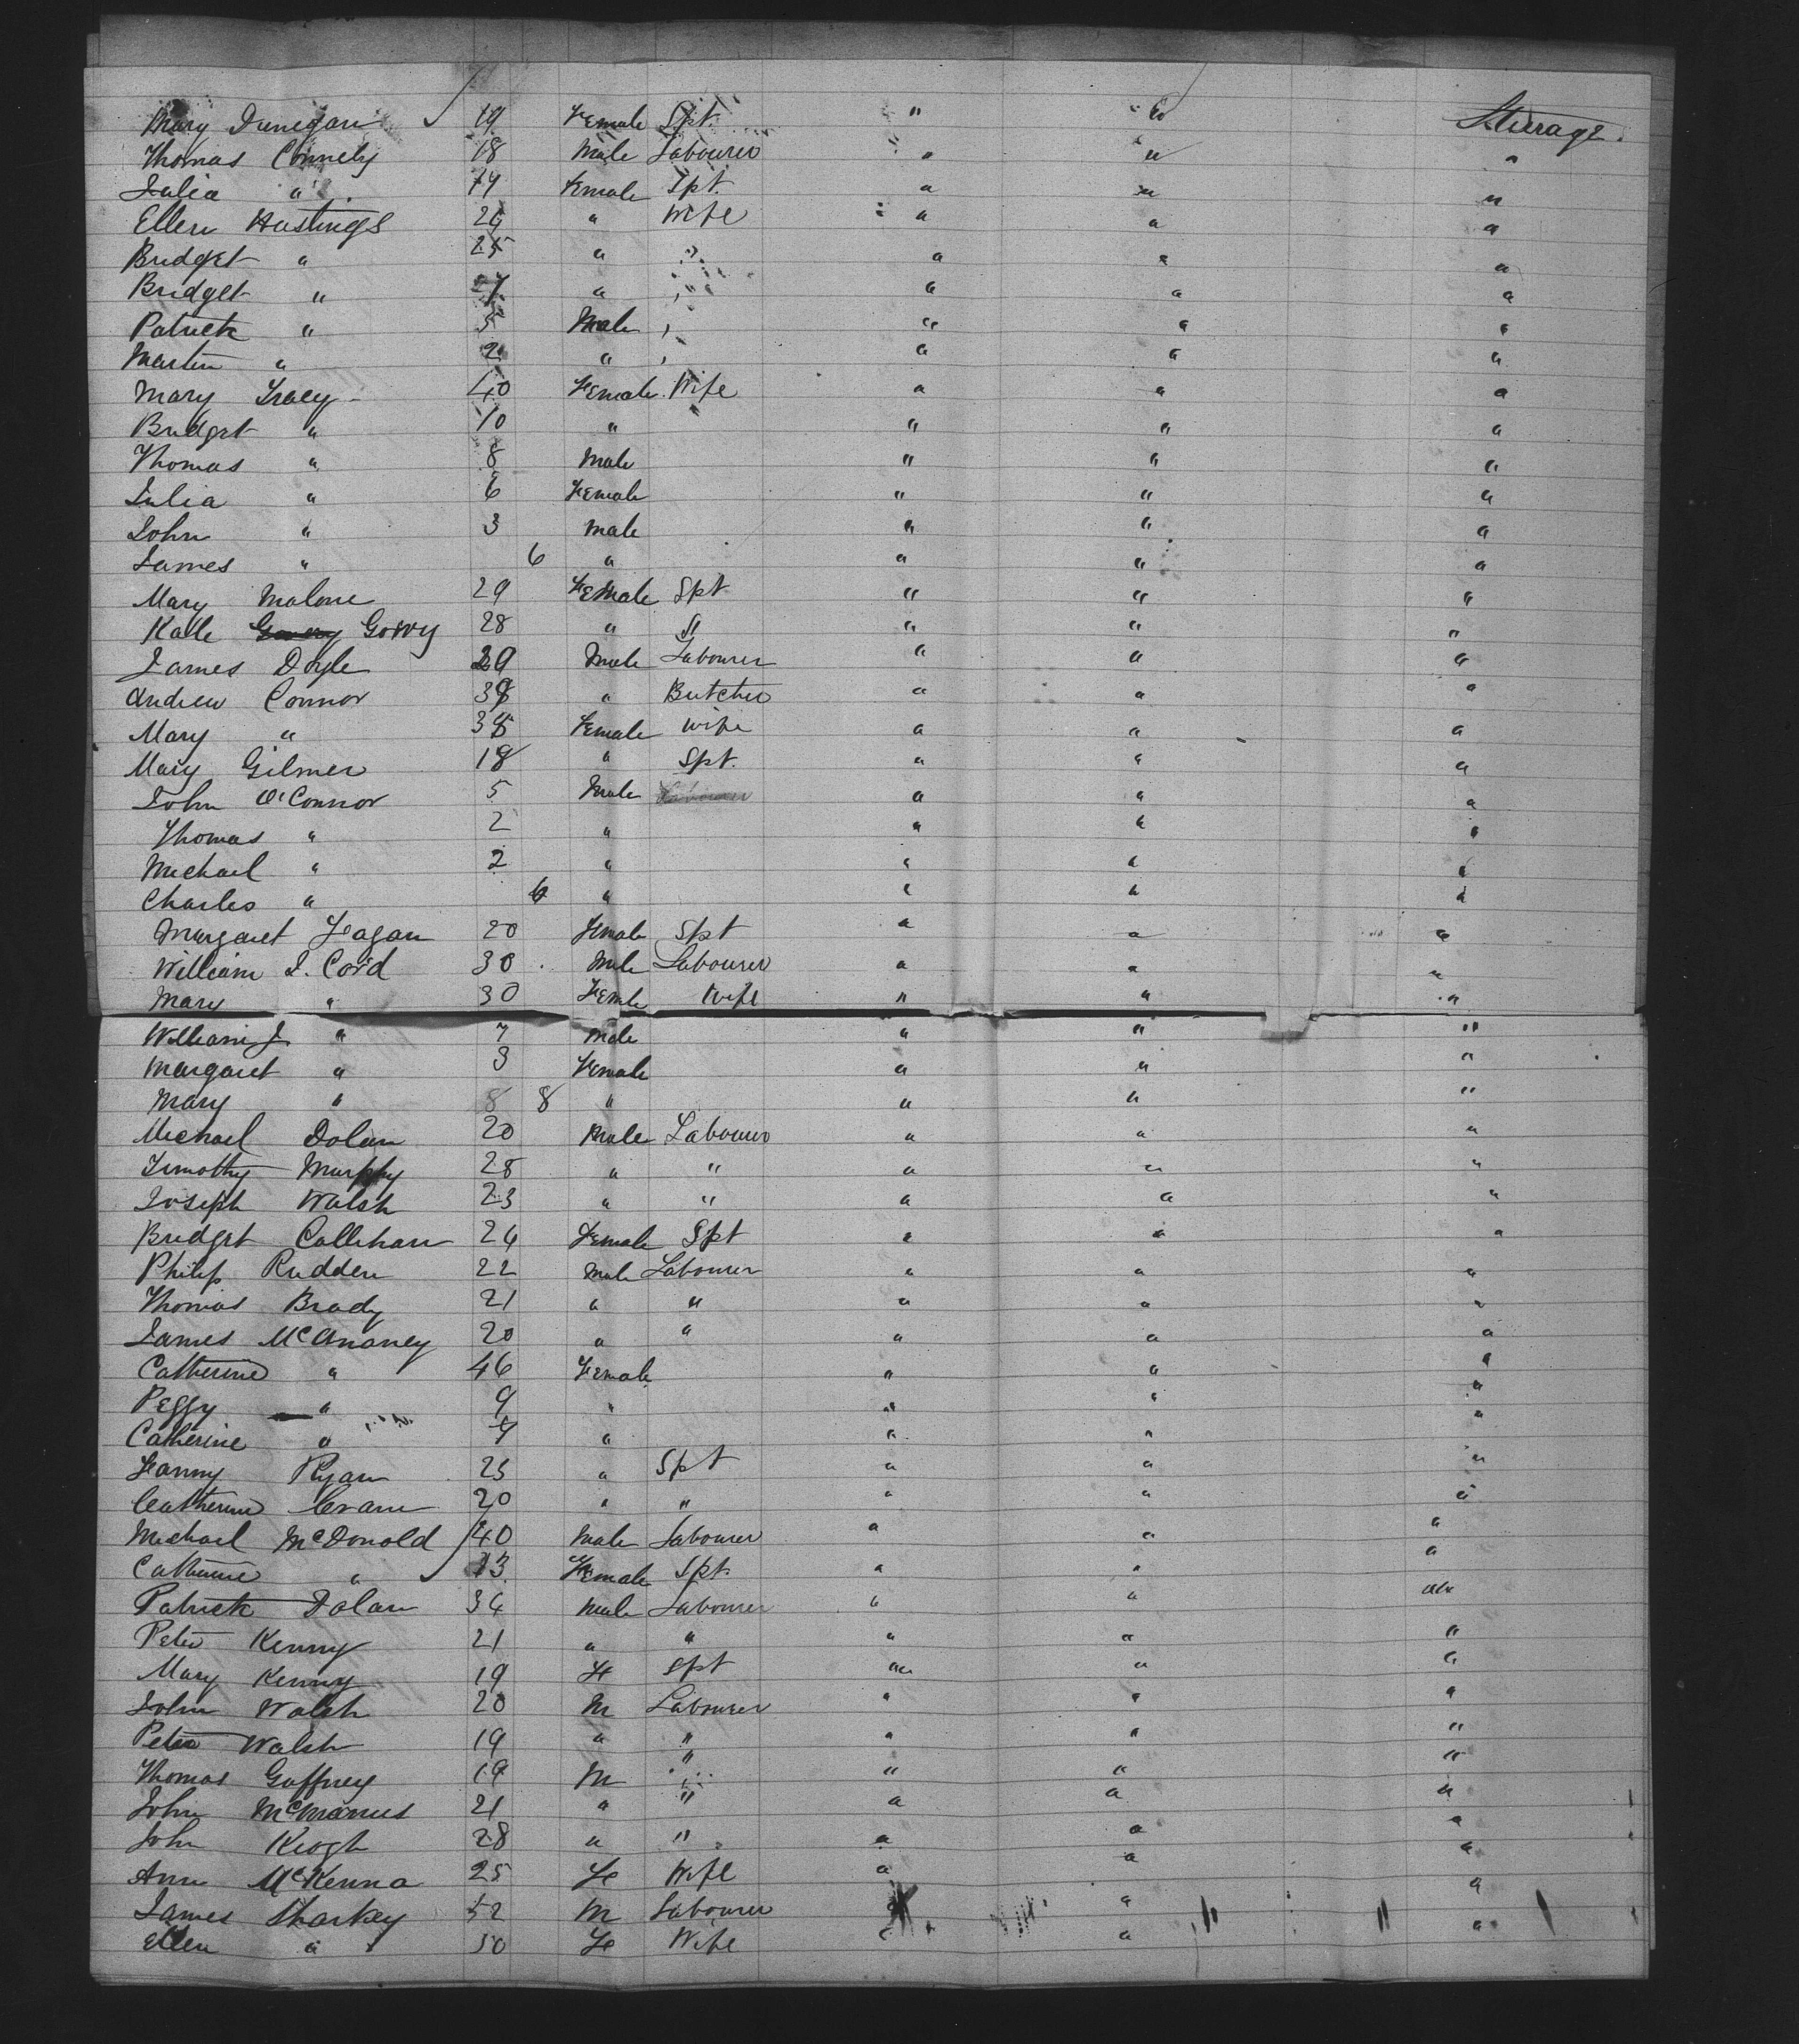 Mary Dunegan 19 Female Spt. " " Steerage.
Thomas Connely 18 Male Labourer " " "
Julia " 14 Female Spt. " " "
Ellen Hastings 24 " Wife " " "
Bridget " 25 " " " " "
Bridget " 7 " " " " "
Patrick " 5 Male " " "
Martin " 2 " " " "
Mary Tracy 40 Female Wife " " "
Bridget " 10 " " " "
Thomas " 8 Male " " "
Julia " 6 Female " " "
John " 3 Male " " "
James " 6 " " " "
Mary Malone 29 Female Spt " " "
Kate Gorry 28 " " " " "
James Doyle 29 Male Labourer " " "
Andrew Connor 38 " Butcher " " "
Mary " 35 Female Wife " " "
Mary Gilmer 18 " Spt. " " "
John O'Connor 5 Male Labourer " " "
Thomas " 2 " " " "
Michael " 2 " " " "
Charles " 6 " " " "
Margaret Fagan 20 Female Spt " " "
William J. Cord 30 Male Labourer " " "
Mary " 30 Female Wife " " "
William J. " 7 Male " " "
Margaret " 3 Female " " "
Mary " 8 8 " " " "
Michael Dolan 20 Male Labourer " " "
Timothy Murphy 28 " " " " "
Joseph Walsh 23 " " " " "
Bridget Callihan 24 Female Spt " " "
Philip Rudden 22 Male Labourer " " "
Thomas Brady 21 " " " " "
James McAnaney 20 " " " " "
Catherine " 46 Female " " "
Peggy " 9 " " " "
Catherine " 4 " " " "
Fanny Ryan 23 " Spt " " "
Catherine Evans 20 " " " " "
Michael McDonald 40 Male Labourer " " "
Catherine " 13 Female Spt " " "
Patrick Dolan 34 Male Labourer " " "
Peter Kenny 21 " " " " "
Mary Kenny 19 Fe Spt " " "
John Walsh 20 M Labourer " " "
Peter Walsh 19 " " " " "
Thomas Gaffney 19 M " " " "
John McManus 21 " " " " "
John Keogh 28 " " " " "
Ann McKenna 25 Fe Wife " " "
James Sharkey 52 M Labourer " " "
Ellen " 50 Fe Wife " " "